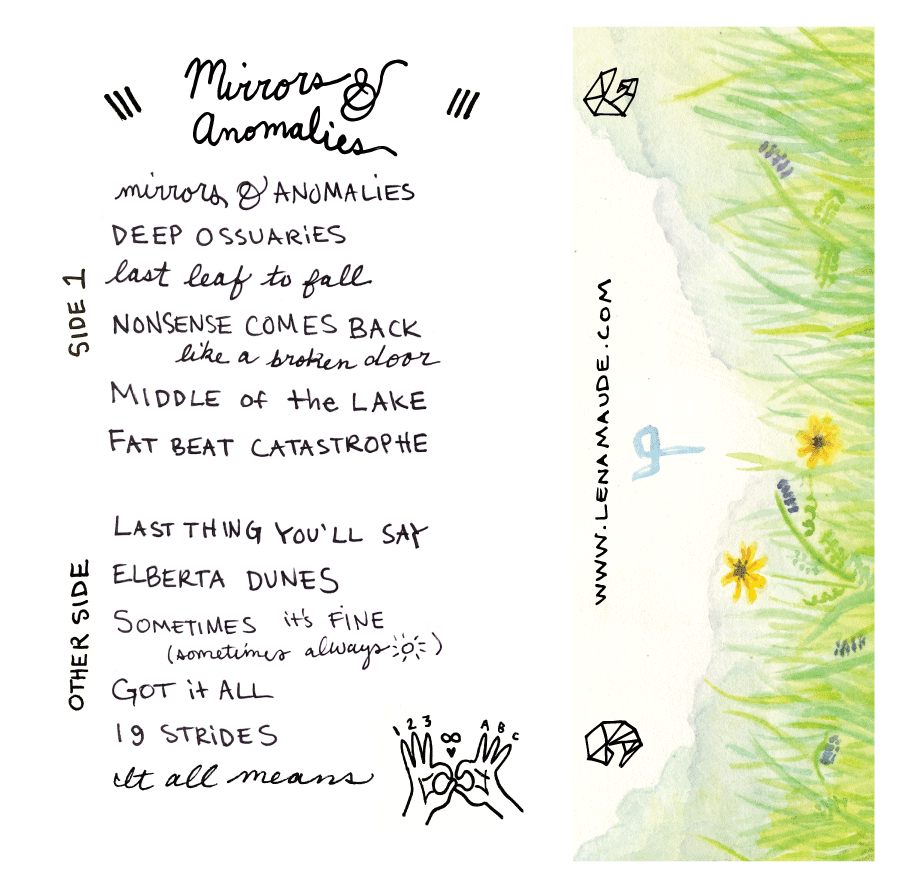 Mirrors &
Anomalies
mirrors & ANOMALIES
DEEP OSSUARIES
last leaf to fall
NONSENSE COMES BACK
like a broken door
MIDDLE of the LAKE
FAT BEAT CATASTROPHE
SIDE 1
LAST THING YOU'LL SAY
ELBERTA DUNES
SOMETIMES it's FINE
(sometimes always )
GOT it ALL
19 STRiDES
It all means
OTHER SIDE
1 2 3 ∞ A B C
WWW.LENAMAUDE.COM